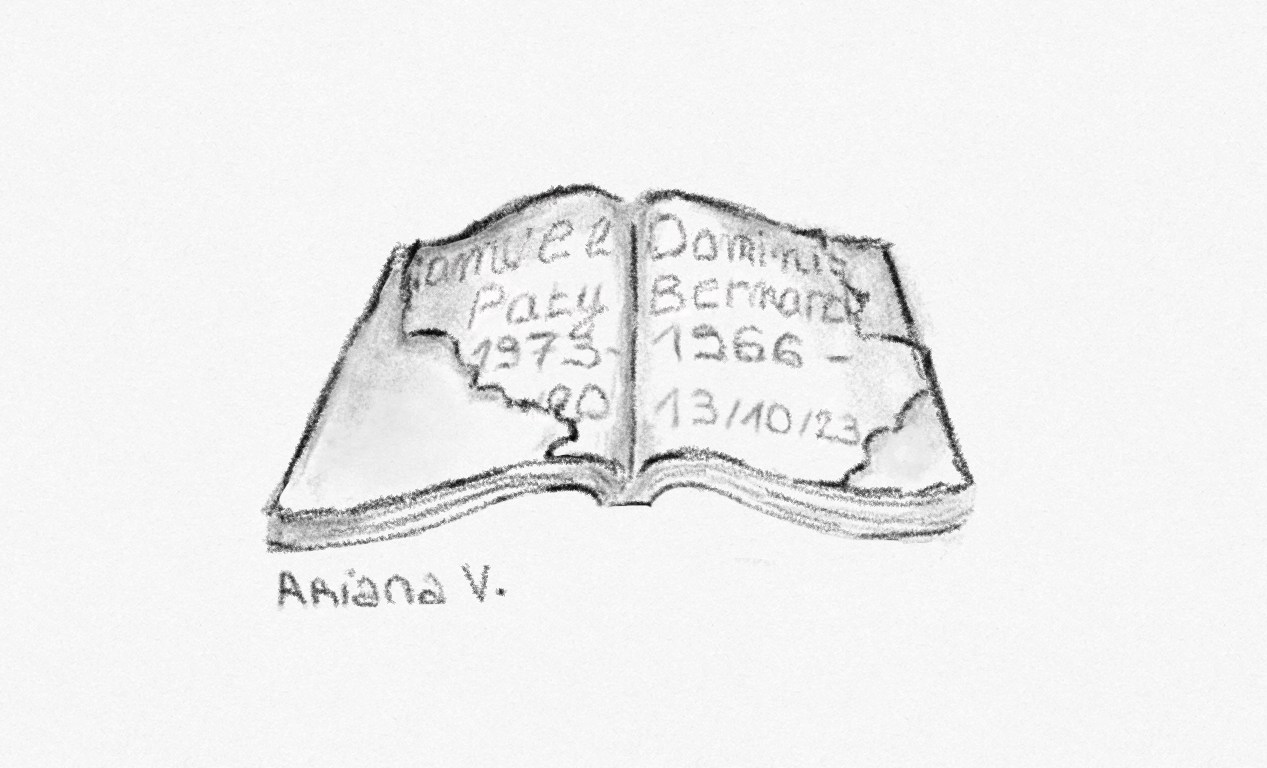 amuel
Paty
1973-
20
Dominic
Bernard
1966 -
13/10/23
Ariana V.